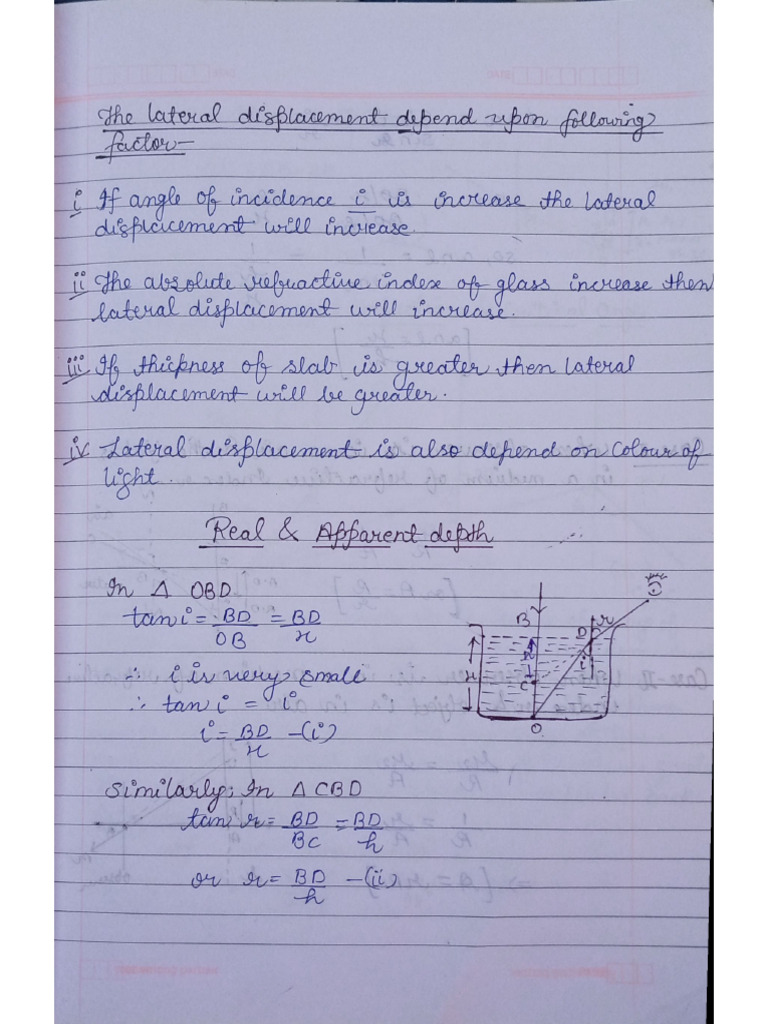 The lateral displacement depend upon following
factor-
i If angle of incidence i is increase the lateral
displacement will increase.
ii The absolute refractive index of glass increase then
lateral displacement will increase.
iii If thickness of slab is greater then lateral
displacement will be greater.
iv Lateral displacement is also depend on colour of
light.
Real & Apparent depth
In Δ OBD
tan i = BD/OB = BD/x
∵ i is very small
∴ tan i = i
i = BD/x -(i)
Similarly; In Δ CBD
tan r = BD/BC = BD/h
or r = BD/h -(ii)
B
r
D
x
h
i
C
O